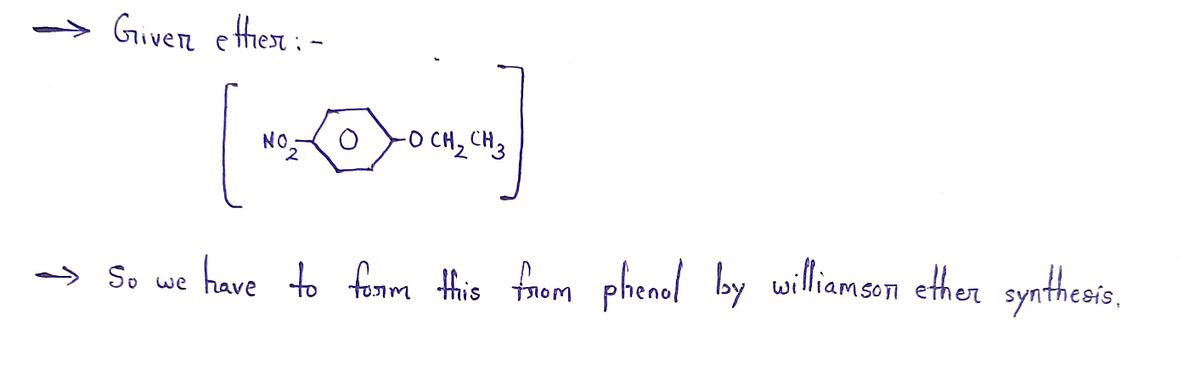 → Given ether:-
[NO₂ O OCH₂CH₃]
→ So we have to form this from phenol by williamson ether synthesis.